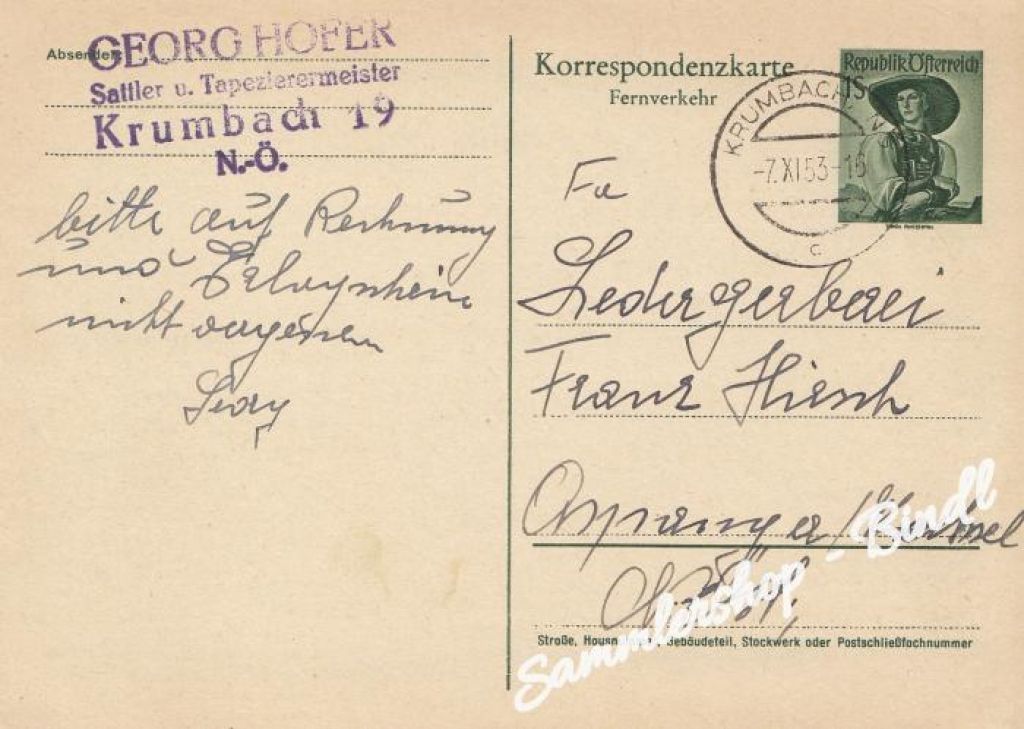 Absender:
GEORG HOFER
Sattler u. Tapezierermeister
Krumbach 19
N.-Ö.
bitte auf Rechnung
und
nicht vergessen
Korrespondenzkarte
Fernverkehr
Republik Österreich
1S
KRUMBACH, N
-7.XI.53-16
c
Fa
Ledergerberei
Franz Hirsch
Aspang
N.Ö.
Straße, Hausnummer, Gebäudeteil, Stockwerk oder Postschließfachnummer
Sammlershop - Bindl